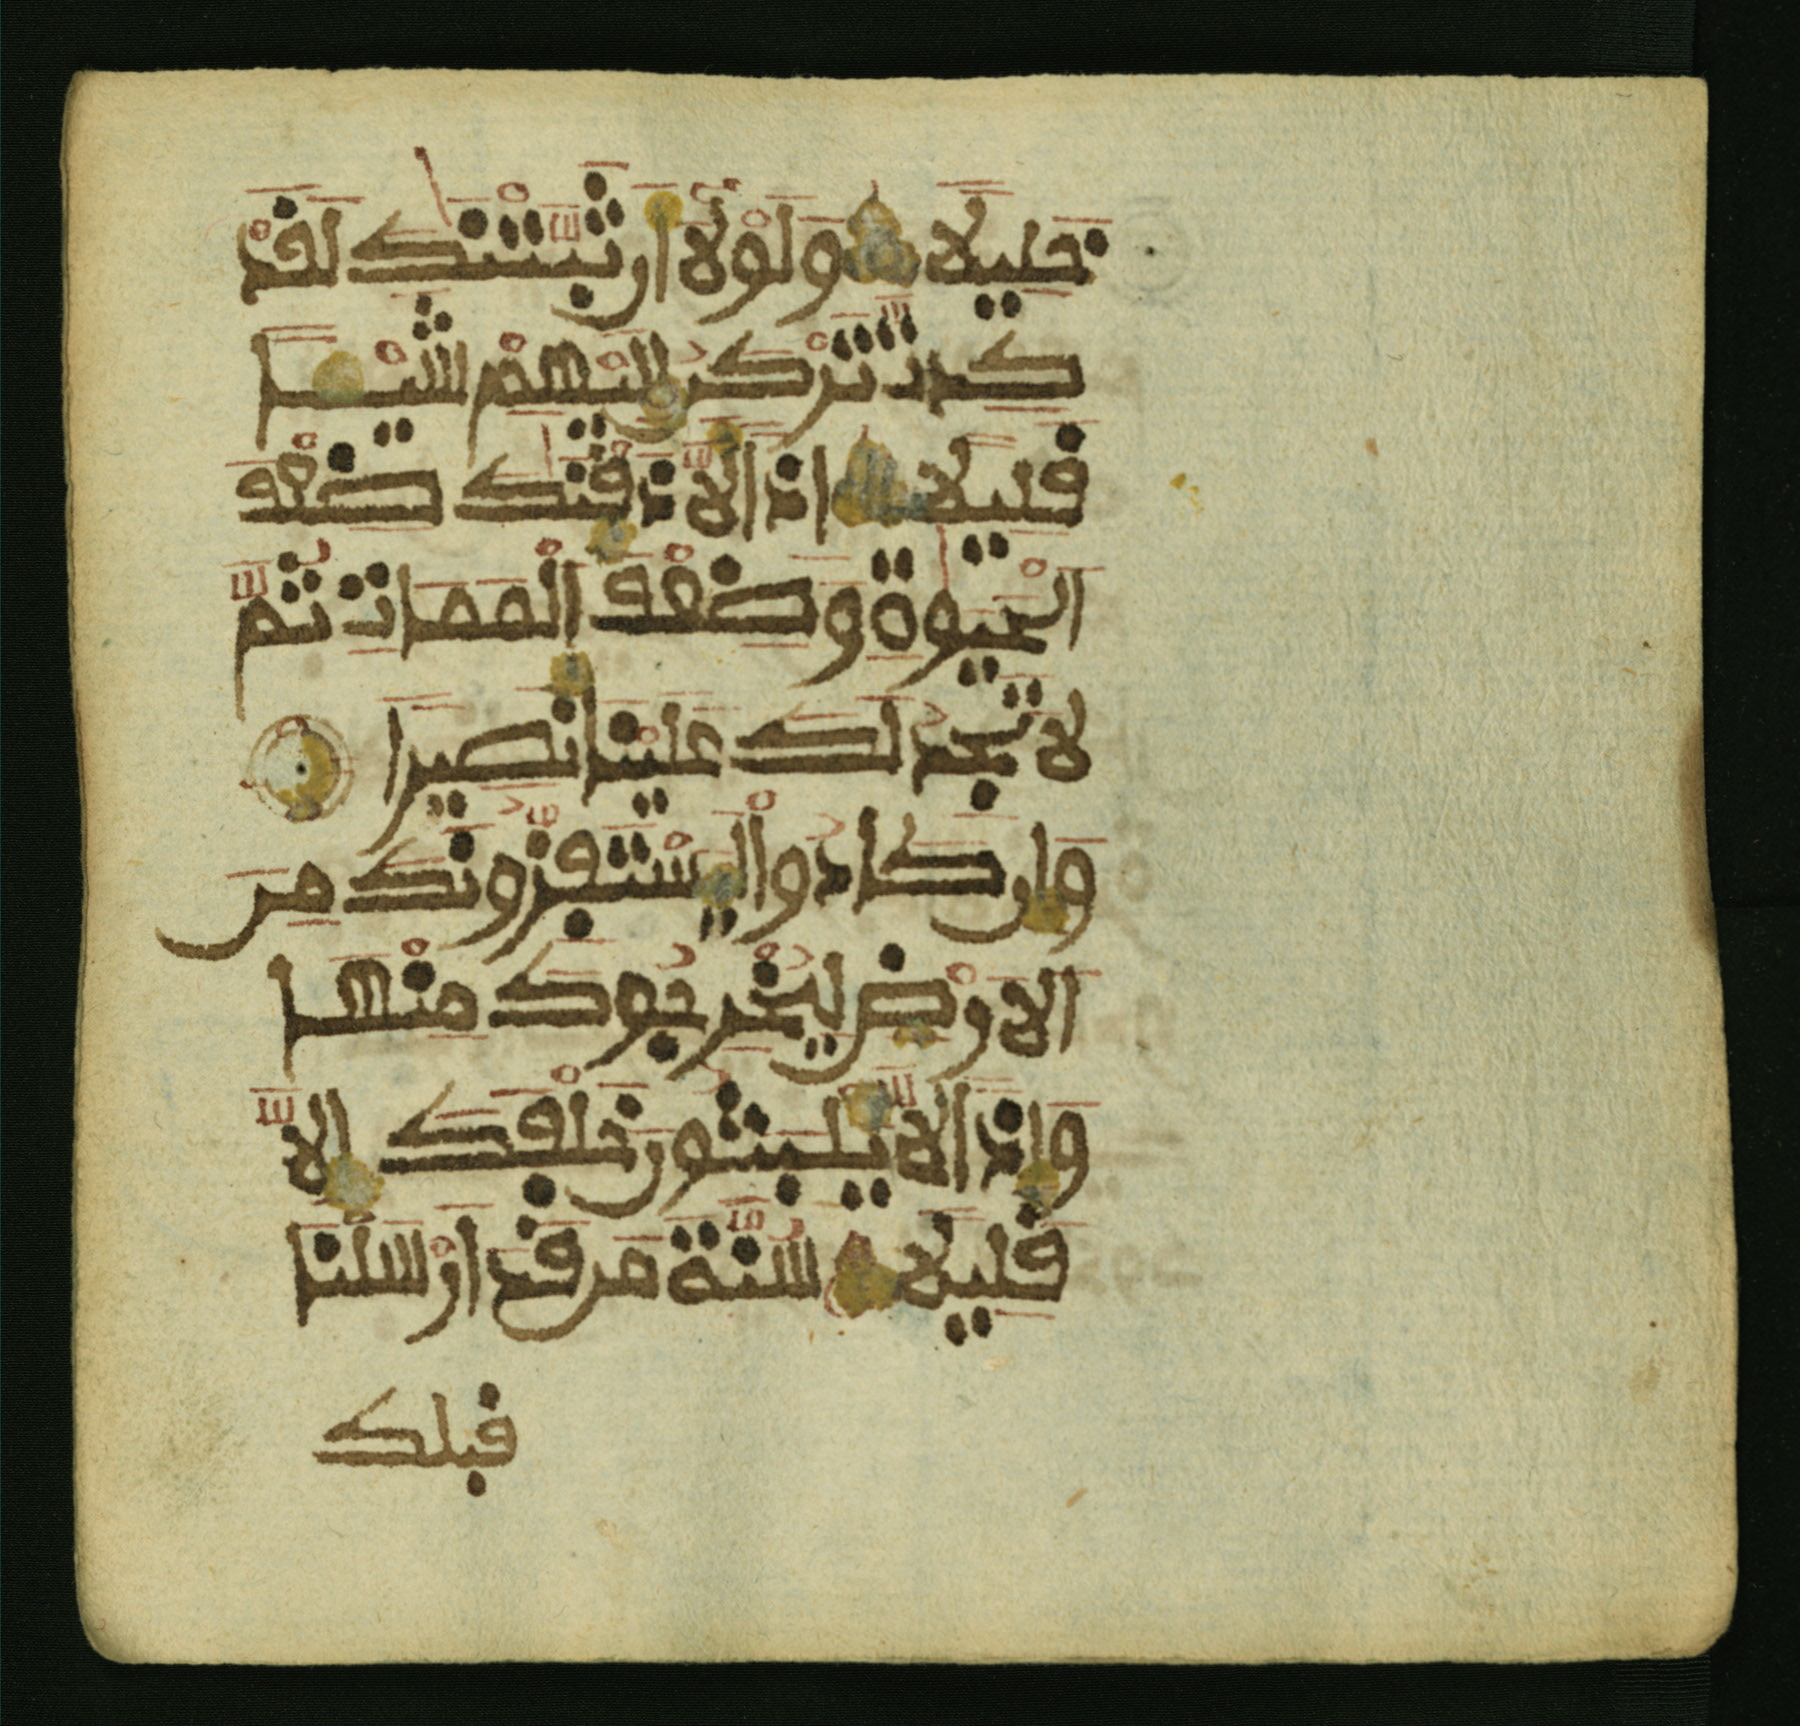 خليلا ولولا أن ثبتنك لقد
كدت تركن إليهم شيئا
قليلا إذا لأذقنك ضعف
الحيوة وضعف الممات ثم
لا تجد لك علينا نصيرا
وإن كادوا ليستفزونك من
الأرض ليخرجوك منها
وإذا لا يلبثون خلفك إلا
قليلا سنة من قد أرسلنا
قبلك